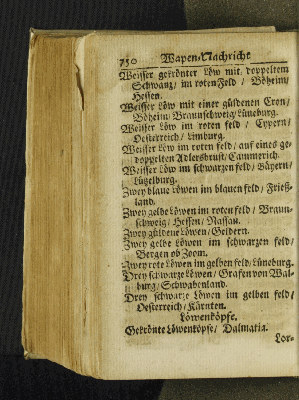 750 Wapen-Nachricht
Weisser gekrönter Löw mit doppeltem
Schwantz / im roten Feld / Böheim /
Hessen.
Weisser Löw mit einer güldenen Cron /
Böheim / Braunschweig / Lüneburg.
Weisser Löw im roten feld / Cypern /
Oesterreich / Limburg.
Weisser Löw im roten feld / auf eines ge-
doppelten Adlersbrust / Cammerich.
Weisser Löw im schwarzen feld / Bäyern /
Lützelburg.
Zwey blaue Löwen im blauen feld / Frieß-
land.
Zwey gelbe Löwen im roten feld / Braun-
schweig / Hessen / Nassau.
Zwey güldene Löwen / Geldern.
Zwey gelbe Löwen im schwarzen feld /
Bergen ob Zoom.
Zwey rote Löwen im gelben feld / Lüneburg.
Drey schwarze Löwen / Grafen von Wal-
burg / Schwabenland.
Drey schwarze Löwen im gelben feld /
Oesterreich / Kärnten.
Löwenköpfe.
Gekrönte Löwenköpfe / Dalmatia.
Lor-